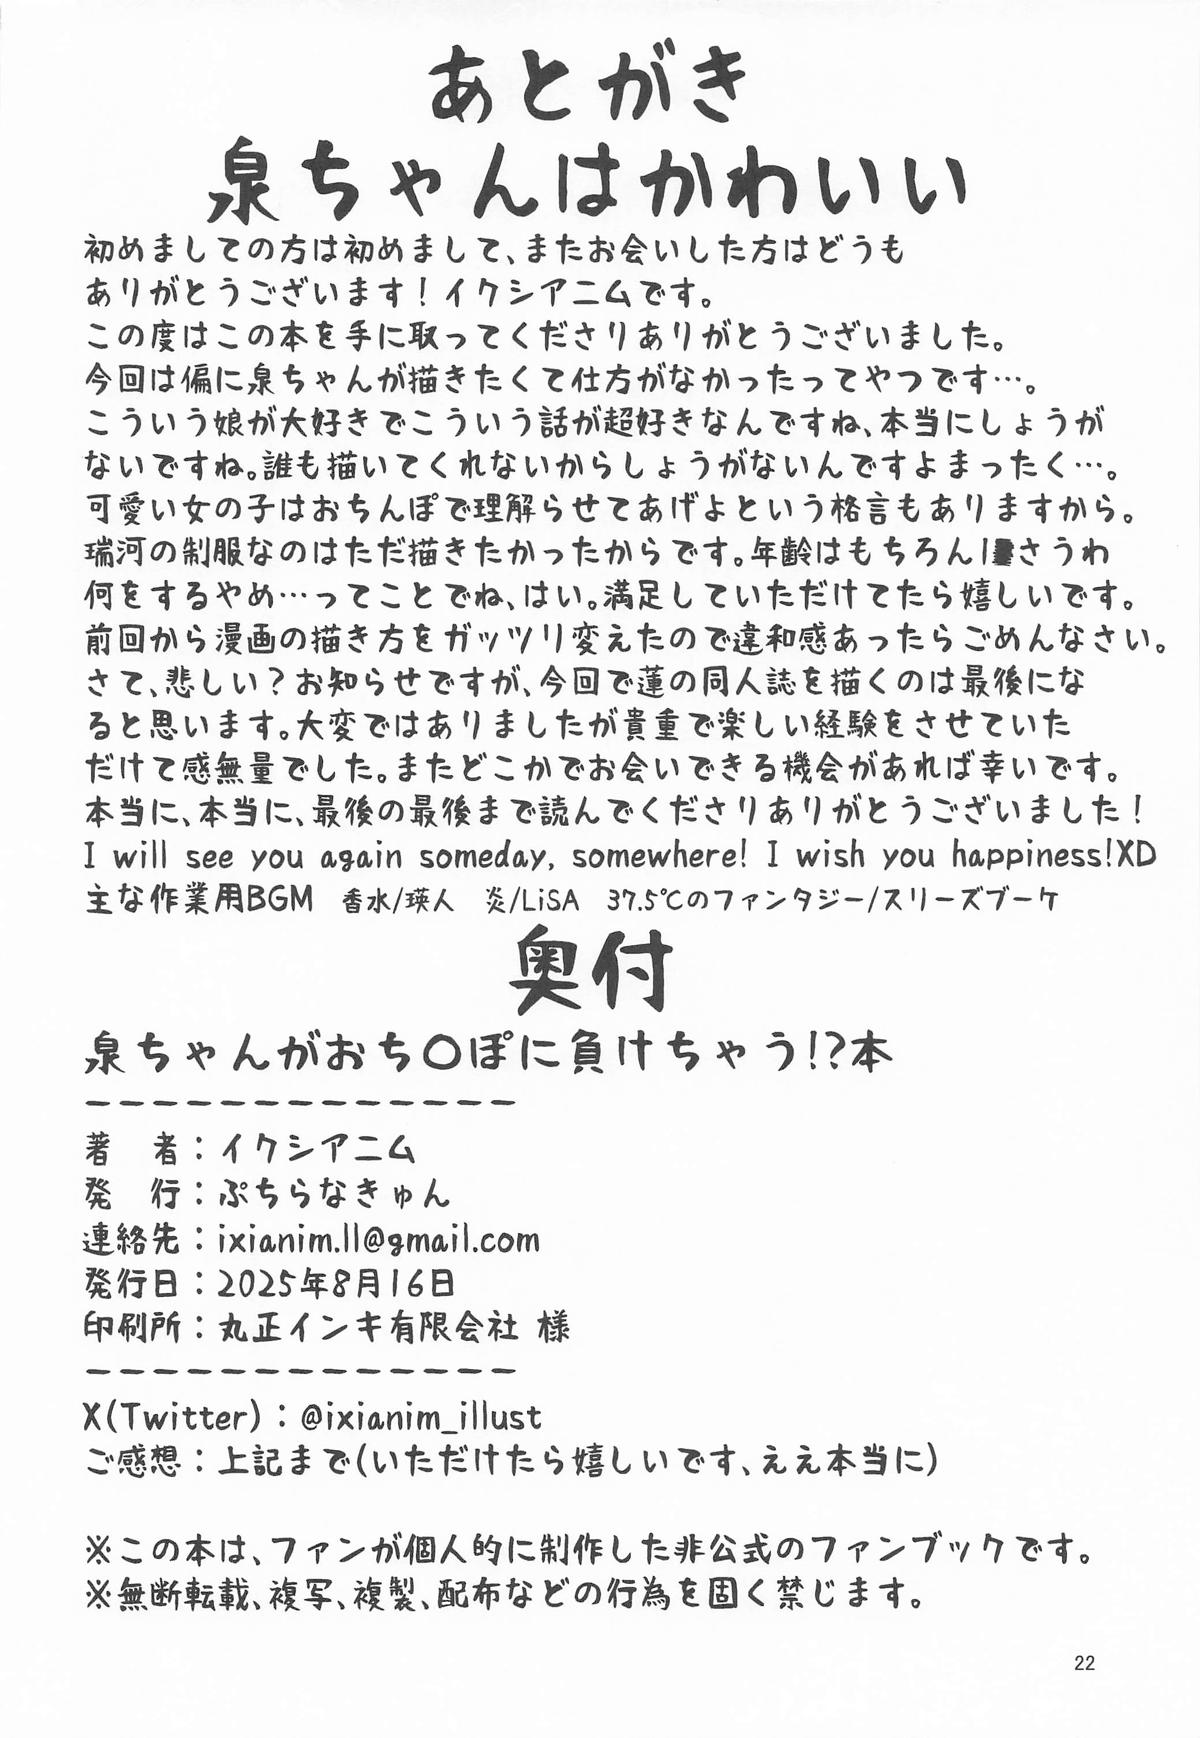 あとがき
泉ちゃんはかわいい
初めましての方は初めまして、またお会いした方はどうも
ありがとうございます！イクシアニムです。
この度はこの本を手に取ってくださりありがとうございました。
今回は偏に泉ちゃんが描きたくて仕方がなかったってやつです…。
こういう娘が大好きでこういう話が超好きなんですね、本当にしょうが
ないですね。誰も描いてくれないからしょうがないんですよまったく…。
可愛い女の子はおちんぽで理解らせてあげよという格言もありますから。
瑞河の制服なのはただ描きたかったからです。年齢はもちろん1さうわ
何をするやめ…ってことでね、はい。満足していただけてたら嬉しいです。
前回から漫画の描き方をガッツリ変えたので違和感あったらごめんなさい。
さて、悲しい？お知らせですが、今回で蓮の同人誌を描くのは最後にな
ると思います。大変ではありましたが貴重で楽しい経験をさせていた
だけて感無量でした。またどこかでお会いできる機会があれば幸いです。
本当に、本当に、最後の最後まで読んでくださりありがとうございました！
I will see you again someday, somewhere! I wish you happiness!XD
主な作業用BGM　香水/瑛人　炎/LiSA　37.5℃のファンタジー/スリーズブーケ
奥付
泉ちゃんがおち〇ぽに負けちゃう!?本
ーーーーーーーーーーーーー
著　者：イクシアニム
発　行：ぷちらなきゅん
連絡先：ixianim.ll@gmail.com
発行日：2025年8月16日
印刷所：丸正インキ有限会社 様
ーーーーーーーーーーーーー
X(Twitter)：@ixianim_illust
ご感想：上記まで(いただけたら嬉しいです、ええ本当に)
※この本は、ファンが個人的に制作した非公式のファンブックです。
※無断転載、複写、複製、配布などの行為を固く禁じます。
22